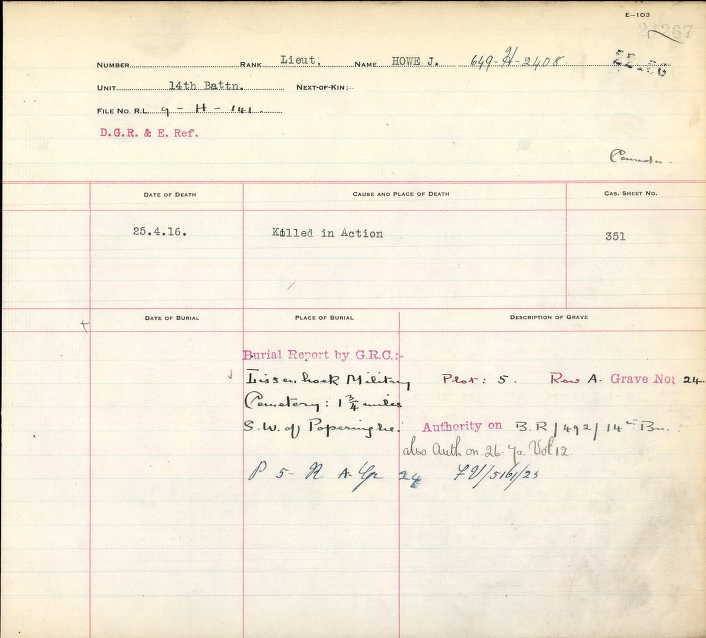 E-103
NUMBER RANK Lieut. NAME HOWE J. 649-H-2408
UNIT 14th Battn. NEXT-OF-KIN:-
FILE NO. R.L. 9 - H - 141.
D.G.R. & E. Ref.
DATE OF DEATH CAUSE AND PLACE OF DEATH CAS. SHEET NO.
25.4.16. Killed in Action 351
DATE OF BURIAL PLACE OF BURIAL DESCRIPTION OF GRAVE
Burial Report by G.R.C.:-
Lissenhoek Military Plot: 5. Row A. Grave No: 24.
Cemetery: 1 3/4 miles
S.W. of Poperinghe. Authority on B.R/492/14th Bn.
also Auth on 26 Vol 12
P 5- R A. Gr 24